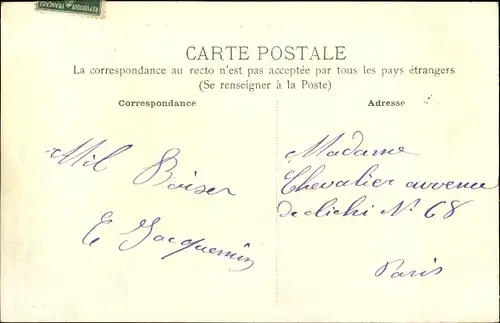 RÉPUBLIQUE FRANÇAISE
CARTE POSTALE
La correspondance au recto n'est pas acceptée par tous les pays étrangers
(Se renseigner à la Poste)
Correspondance
Mil Baiser
E Jacquemin
Adresse
Madame
Chevalier avvenue
de clichi N° 68
Paris